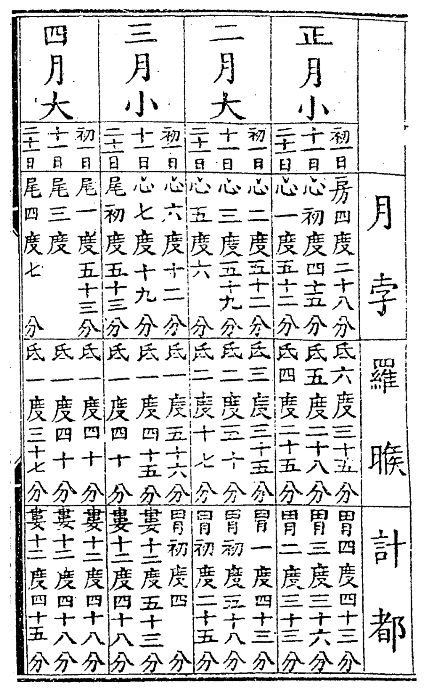 月孛 羅睺 計都
正月小
初一日 房四度二十八分 氐六度三十五分 胃四度四十三分
十一日 心初度四十五分 氐五度二十八分 胃三度三十六分
二十一日 心一度五十二分 氐四度二十五分 胃二度三十三分
二月大
初一日 心二度五十二分 氐三度三十五分 胃一度四十三分
十一日 心三度五十九分 氐二度五十分 胃初度五十八分
二十一日 心五度六分 氐二度十七分 胃初度二十五分
三月小
初一日 心六度十二分 氐一度五十六分 胃初度四分
十一日 心七度十九分 氐一度四十五分 婁十二度五十三分
二十一日 尾初度五十三分 氐一度四十分 婁十二度四十八分
四月大
初一日 尾一度五十三分 氐一度四十分 婁十二度四十八分
十一日 尾三度 氐一度四十分 婁十二度四十八分
二十一日 尾四度七分 氐一度三十七分 婁十二度四十五分